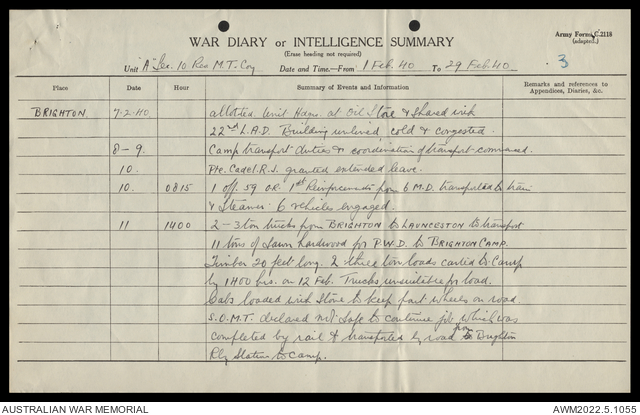 Army Form C.2118
(adapted).
WAR DIARY or INTELLIGENCE SUMMARY
(Erase heading not required)
3
Unit "A" Sec. 10 Res M.T. Coy Date and Time—From 1 Feb. 40 To 29 Feb. 40.
Place Date Hour Summary of Events and Information Remarks and references to Appendices, Diaries, &c.
BRIGHTON 7-2-40. allotted Unit Hqrs. at Oil Store & shared with
22nd L.A.D. Building unlined cold & congested.
8-9. Camp transport duties & coordination of transport commenced.
10. Pte. Cadel. R.J. granted extended leave.
10. 0815 1 off. 59 O.R. 1st Reinforcements from 6 M.D. transported to train
& Steamer. 6 vehicles engaged.
11 1400 2-3 ton trucks from BRIGHTON to LAUNCESTON to transport
11 tons of sawn hardwood for P.W.D. to BRIGHTON CAMP.
Timber 20 feet long. 2 three ton loads carted to Camp
by 1400 hrs. on 12 Feb. Trucks unsuitable for load.
Cabs loaded with stone to keep front wheels on road.
S.O.M.T. declared not safe to continue job which was
completed by rail & transported by road from Brighton
Rly Station to Camp.
AUSTRALIAN WAR MEMORIAL AWM2022.5.1055